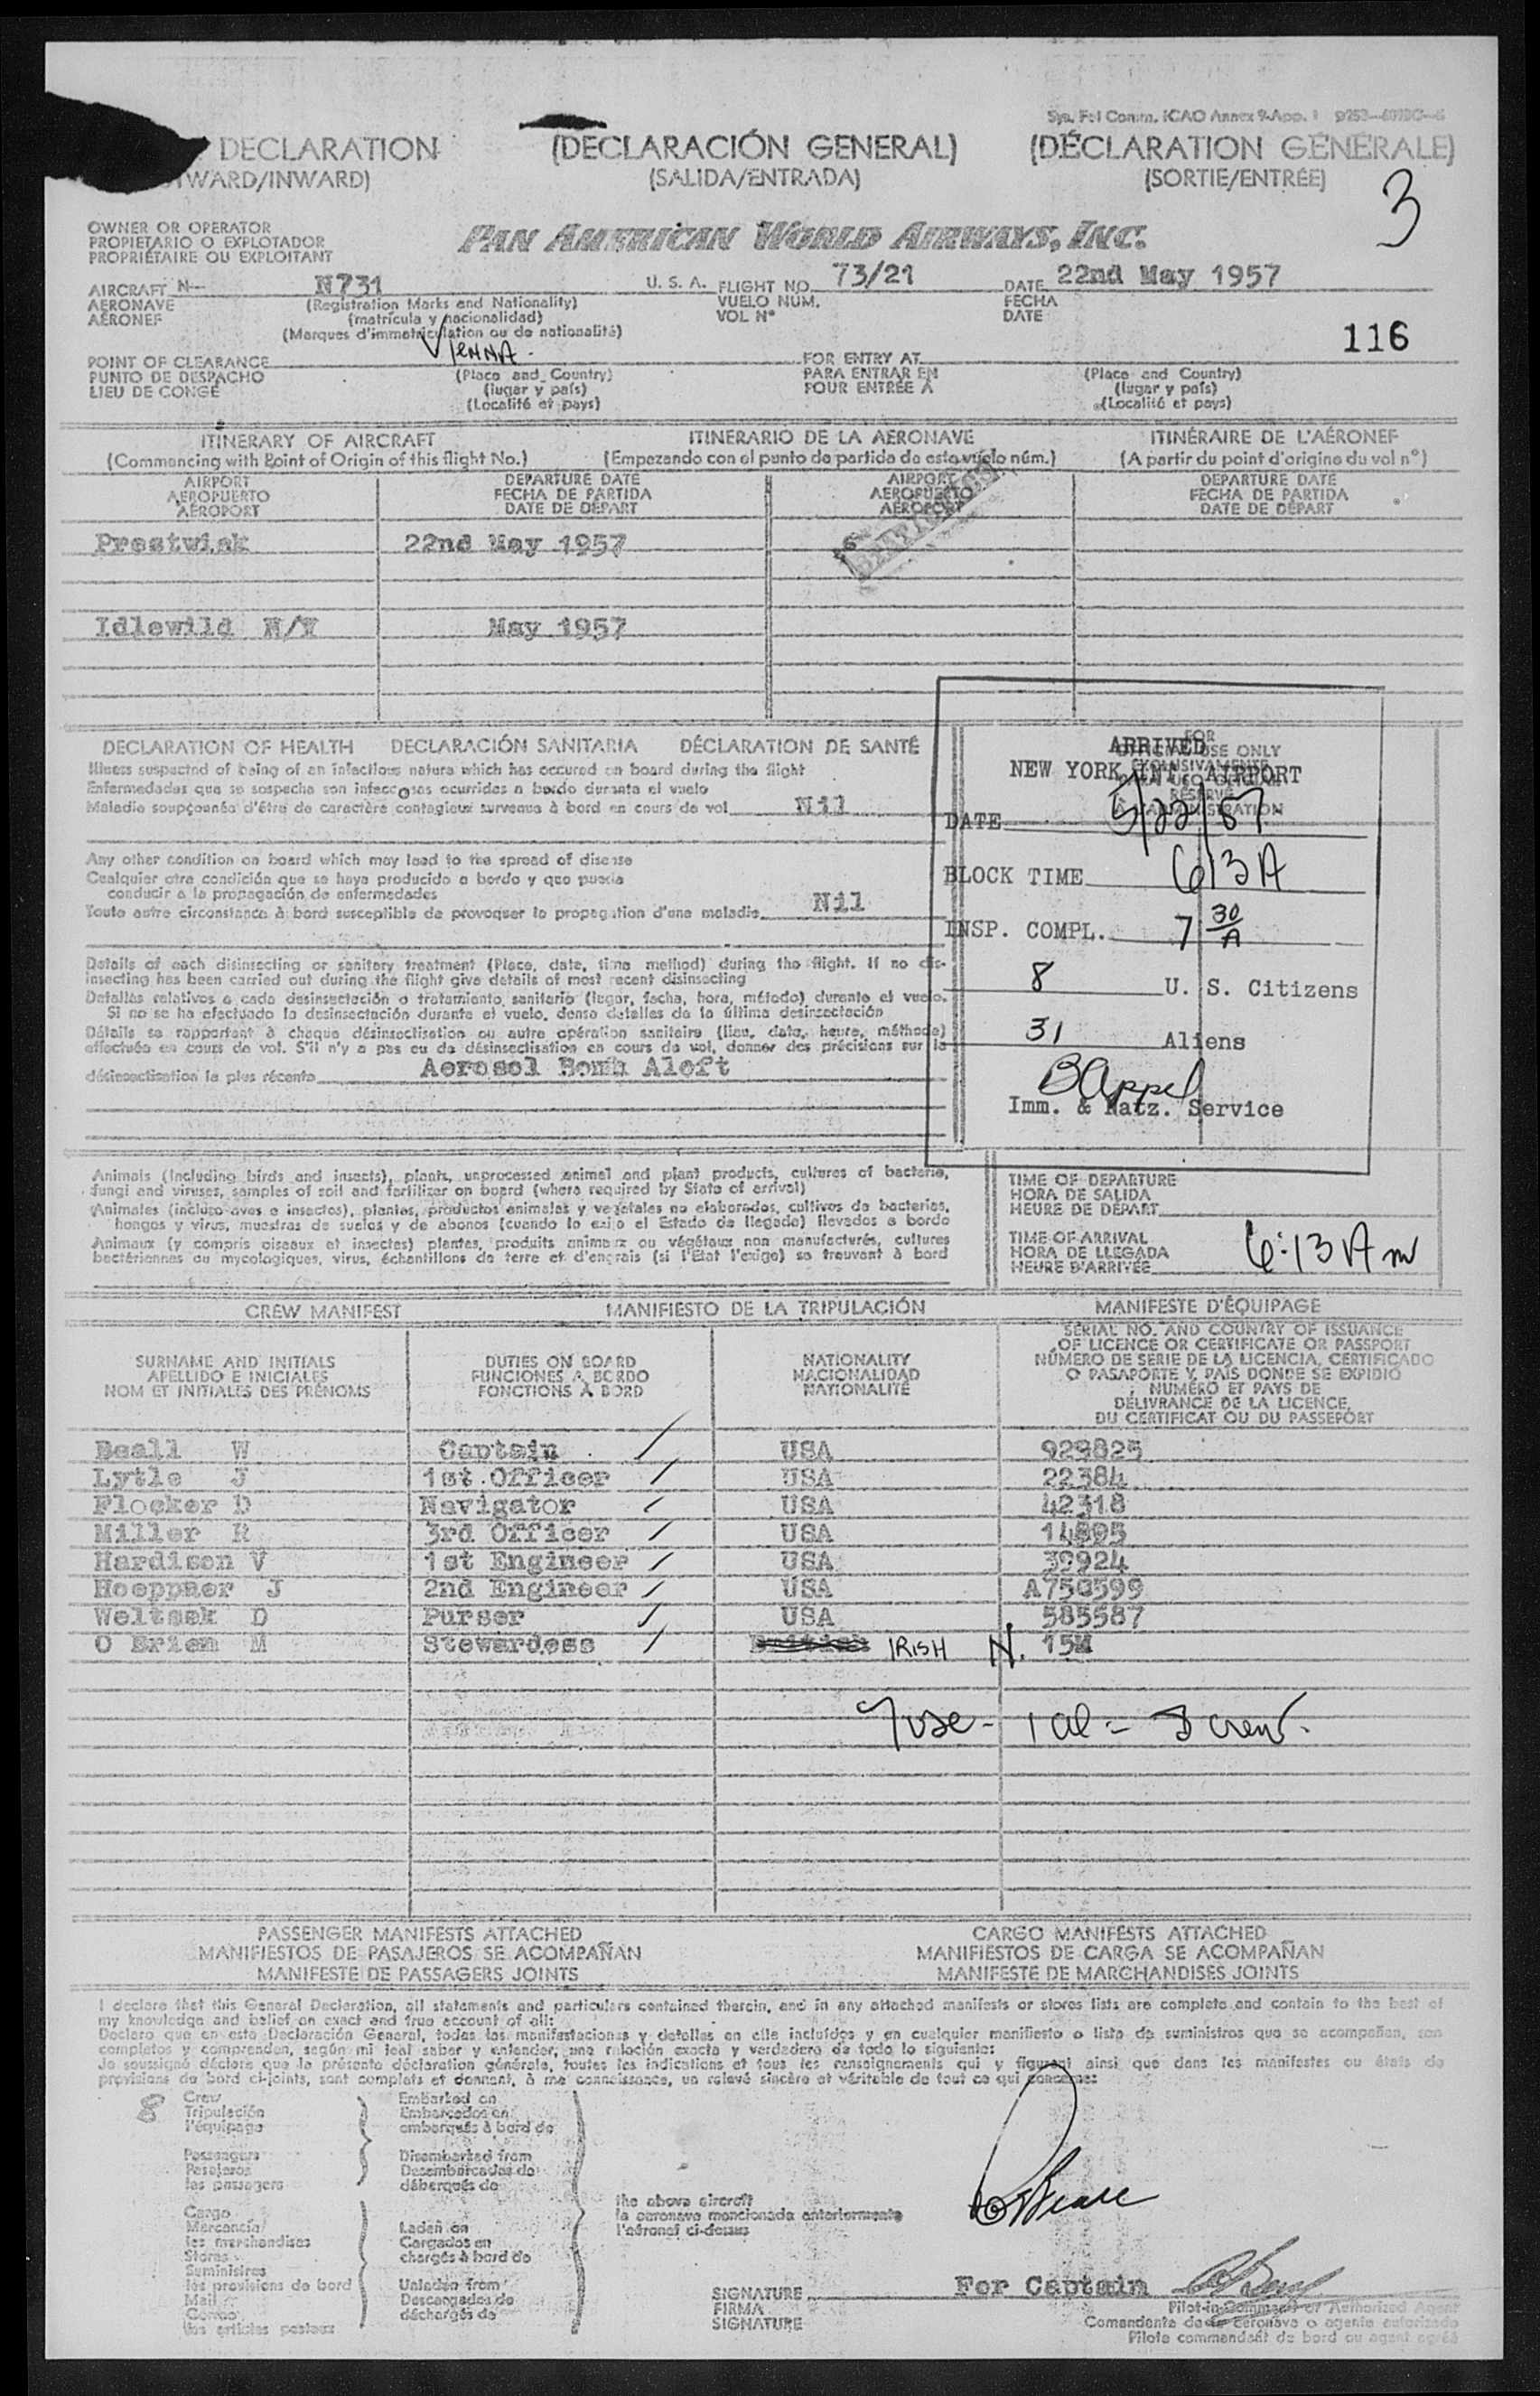 DECLARATION (DECLARACIÓN GENERAL) (DÉCLARATION GÉNÉRALE)
TWARD/INWARD) (SALIDA/ENTRADA) (SORTIE/ENTRÉE)
3
OWNER OR OPERATOR
PROPIETARIO O EXPLOTADOR
PROPRIÉTAIRE OU EXPLOITANT
PAN AMERICAN WORLD AIRWAYS, INC.
AIRCRAFT N— N731 U. S. A. FLIGHT NO. 73/21 DATE 22nd May 1957
AERONAVE (Registration Marks and Nationality) VUELO NÚM. FECHA
AÉRONEF (matrícula y nacionalidad) VOL Nº DATE
(Marques d'immatriculation ou de nationalité)
116
POINT OF CLEARANCE VIENNA. FOR ENTRY AT
PUNTO DE DESPACHO (Place and Country) PARA ENTRAR EN (Place and Country)
LIEU DE CONGÉ (lugar y país) POUR ENTRÉE A (lugar y país)
(Localité et pays) (Localité et pays)
ITINERARY OF AIRCRAFT ITINERARIO DE LA AERONAVE ITINÉRAIRE DE L'AÉRONEF
(Commencing with Point of Origin of this flight No.) (Empezando con el punto de partida de este vuelo núm.) (A partir du point d'origine du vol nº)
AIRPORT DEPARTURE DATE AIRPORT DEPARTURE DATE
AEROPUERTO FECHA DE PARTIDA AEROPUERTO FECHA DE PARTIDA
AÉROPORT DATE DE DÉPART AÉROPORT DATE DE DÉPART
Prestwick 22nd May 1957
Idlewild N/Y May 1957
DECLARATION OF HEALTH DECLARACIÓN SANITARIA DÉCLARATION DE SANTÉ
Illness suspected of being of an infectious nature which has occured on board during the flight
Enfermedades que se sospecha son infecciosas ocurridas a bordo durante el vuelo
Maladie soupçonnée d'être de caractère contagieux survenue à bord en cours de vol Nil
Any other condition on board which may lead to the spread of disease
Cualquier otra condición que se haya producido a bordo y que pueda
conducir a la propagación de enfermedades
Toute autre circonstance à bord susceptible de provoquer la propagation d'une maladie Nil
Details of each disinsecting or sanitary treatment (Place, date, time method) during the flight. If no dis-
insecting has been carried out during the flight give details of most recent disinsecting
Detalles relativos a cada desinsectación o tratamiento sanitario (lugar, fecha, hora, método) durante el vuelo.
Si no se ha efectuado la desinsectación durante el vuelo, dense detalles de la última desinsectación
Détails se rapportant à chaque désinsectisation ou autre opération sanitaire (lieu, date, heure, méthode)
effectuée en cours de vol. S'il n'y a pas eu de désinsectisation en cours de vol, donner des précisions sur la
désinsectisation la plus récente Aerosol Bomb Aloft
FOR
OFFICIAL USE ONLY
ARRIVED
NEW YORK INT. AIRPORT
DATE 5/22/57
BLOCK TIME 613A
INSP. COMPL. 7 30/A
8 U. S. Citizens
31 Aliens
B Appel
Imm. & Natz. Service
Animals (Including birds and insects), plants, unprocessed animal and plant products, cultures of bacteria,
fungi and viruses, samples of soil and fertilizer on board (where required by State of arrival)
Animales (incluso aves e insectos), plantas, productos animales y vegetales no elaborados, cultivos de bacterias,
hongos y virus, muestras de suelos y de abonos (cuando lo exija el Estado de llegada) llevados a bordo
Animaux (y compris oiseaux et insectes) plantes, produits animaux ou végétaux non manufacturés, cultures
bactériennes ou mycologiques, virus, échantillons de terre et d'engrais (si l'Etat l'exige) se trouvant à bord
TIME OF DEPARTURE
HORA DE SALIDA
HEURE DE DÉPART
TIME OF ARRIVAL
HORA DE LLEGADA
HEURE D'ARRIVÉE 6:13 A m
CREW MANIFEST MANIFIESTO DE LA TRIPULACIÓN MANIFESTE D'ÉQUIPAGE
SURNAME AND INITIALS
APELLIDO E INICIALES
NOM ET INITIALES DES PRÉNOMS
DUTIES ON BOARD
FUNCIONES A BORDO
FONCTIONS À BORD
NATIONALITY
NACIONALIDAD
NATIONALITÉ
SERIAL NO. AND COUNTRY OF ISSUANCE
OF LICENCE OR CERTIFICATE OR PASSPORT
NÚMERO DE SERIE DE LA LICENCIA, CERTIFICADO
O PASAPORTE Y PAÍS DONDE SE EXPIDIÓ
NUMÉRO ET PAYS DE
DÉLIVRANCE DE LA LICENCE,
DU CERTIFICAT OU DU PASSEPORT
Beall W Captain USA 929825
Lytle J 1st Officer USA 22384
Flocker D Navigator USA 42318
Miller R 3rd Officer USA 14895
Hardison V 1st Engineer USA 39924
Hoeppner J 2nd Engineer USA A750599
Weltsek D Purser USA 585587
O Brien M Stewardess British IRISH N. 15M
PASSENGER MANIFESTS ATTACHED CARGO MANIFESTS ATTACHED
MANIFIESTOS DE PASAJEROS SE ACOMPAÑAN MANIFIESTOS DE CARGA SE ACOMPAÑAN
MANIFESTE DE PASSAGERS JOINTS MANIFESTE DE MARCHANDISES JOINTS
I declare that this General Declaration, all statements and particulars contained therein, and in any attached manifests or stores lists are complete and contain to the best of
my knowledge and belief an exact and true account of all:
Declaro que en esta Declaración General, todas las manifestaciones y detalles en ella incluídos y en cualquier manifiesto o lista de suministros que se acompañan, son
completos y comprenden, según mi leal saber y entender, una relación exacta y verdadera de todo lo siguiente:
Je soussigné déclare que la présente déclaration générale, toutes les indications et tous les renseignements qui y figurent ainsi que dans les manifestes ou états de
provisions de bord ci-joints, sont complets et donnent, à ma connaissance, un relevé sincère et véritable de tout ce qui concerne:
8 Crew
Tripulación
l'équipage
Embarked on
Embarcados en
embarqués à bord de
Passengers
Pasajeros
les passagers
Disembarked from
Desembarcados de
débarqués de
Cargo
Mercancía
les marchandises
Stores
Suministros
les provisions de bord
Mail
Correo
les articles postaux
Laden on
Cargados en
chargés à bord de
Unladen from
Descargados de
déchargés de
the above aircraft
la aeronave mencionada anteriormente
l'aéronef ci-dessus
SIGNATURE For Captain
FIRMA
SIGNATURE
Pilot-in-Command or Authorized Agent
Comandante de la aeronave o agente autorizado
Pilote commandant de bord ou agent agréé